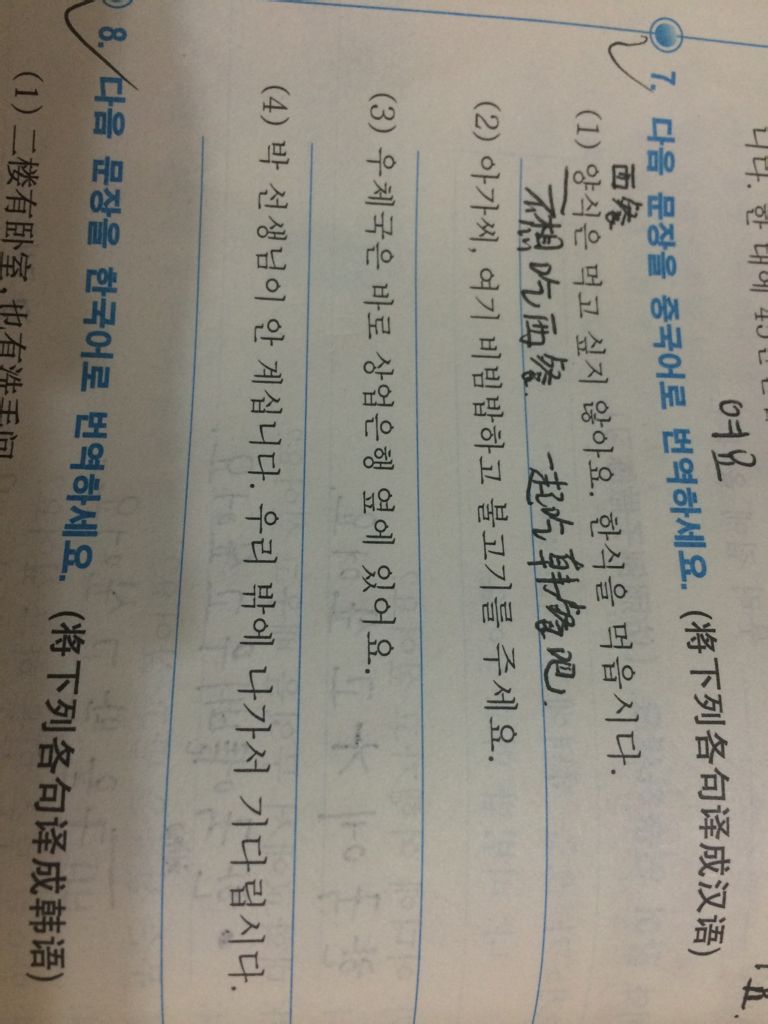 니다. 한 대에 45만
여요
7. 다음 문장을 중국어로 번역하세요. (将下列各句译成汉语)
西餐
(1) 양식은 먹고 싶지 않아요. 한식을 먹읍시다.
不想吃西餐. 一起吃韩餐吧.
(2) 아가씨, 여기 비빔밥하고 불고기를 주세요.
(3) 우체국은 바로 상업은행 옆에 있어요.
(4) 박 선생님이 안 계십니다. 우리 밖에 나가서 기다립시다.
8. 다음 문장을 한국어로 번역하세요. (将下列各句译成韩语)
(1) 二楼有卧室,也有洗手间